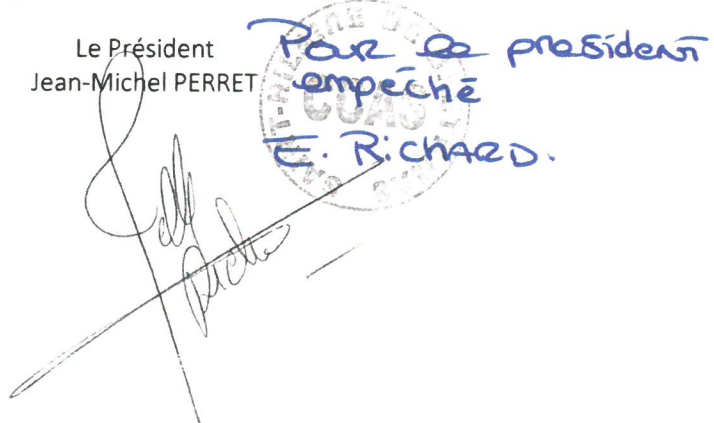 Le Président
Jean-Michel PERRET
Pour le président
empéché
E. RiCHARD.
CCAS